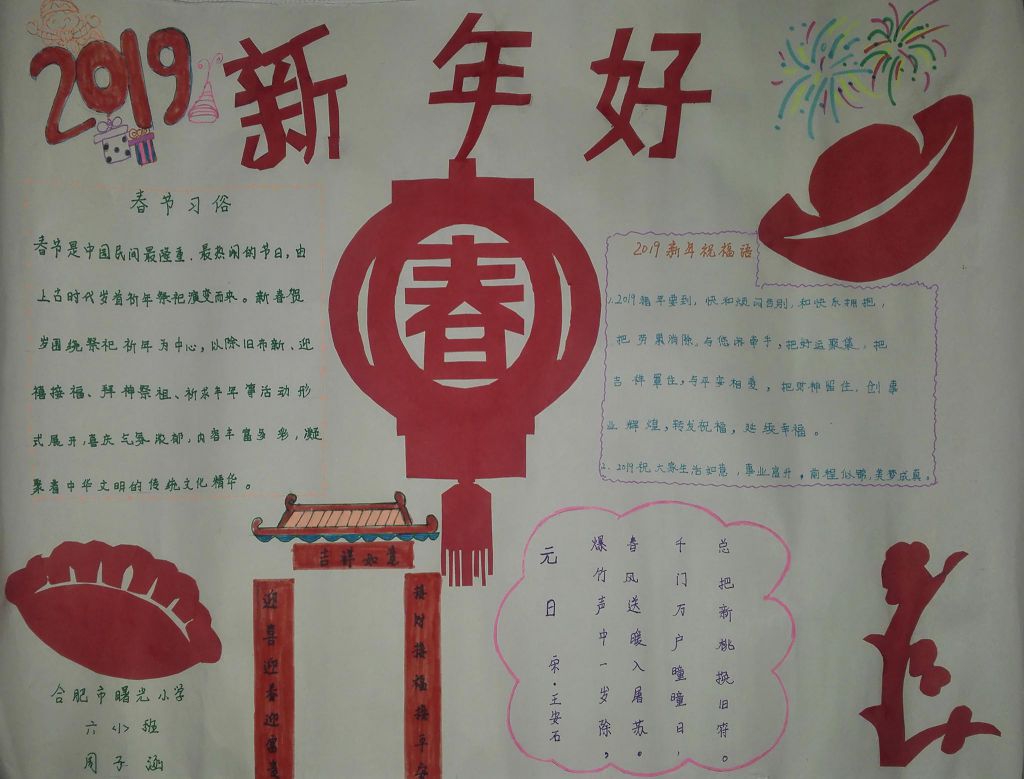 2019
新年好
春
春节习俗
春节是中国民间最隆重、最热闹的节日,由
上古时代岁首祈年祭祀演变而来。新春贺
岁围绕祭祀祈年为中心,以除旧布新、迎
禧接福、拜神祭祖、祈求丰年等活动形
式展开,喜庆气氛浓郁,内容丰富多彩,凝
聚着中华文明的传统文化精华。
2019新年祝福语
1.2019猪年要到,快和烦闷告别,和快乐拥抱,
把劳累消除,与悠然牵手,把好运聚集,把
吉祥罩住,与平安相爱,把财神留住,创事
业辉煌,转发祝福,延续幸福。
2.2019祝大家生活如意,事业高升,前程似锦,美梦成真。
吉祥如意
迎喜迎春迎富贵
接财接福接平安
元日
宋·王安石
爆竹声中一岁除,
春风送暖入屠苏。
千门万户曈曈日,
总把新桃换旧符。
合肥市曙光小学
六小班
周子涵